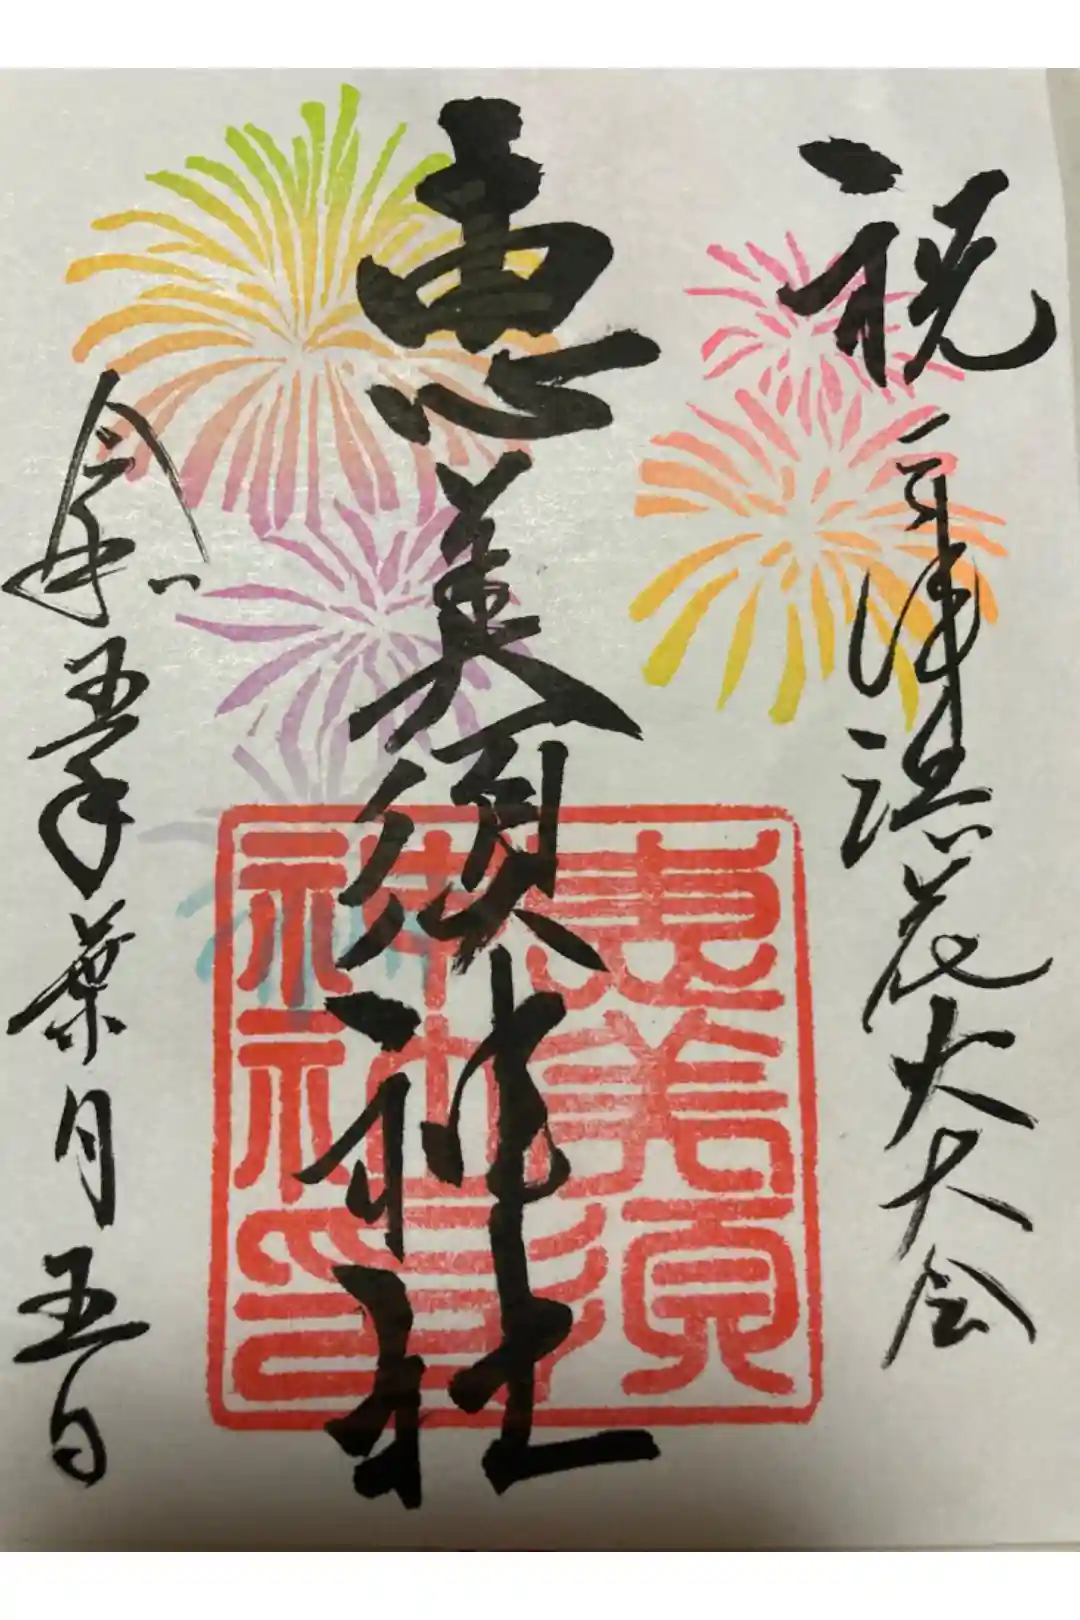 祝 三津浜花火大会
恵美須神社
令和五年葉月五日
惠美須
神社印